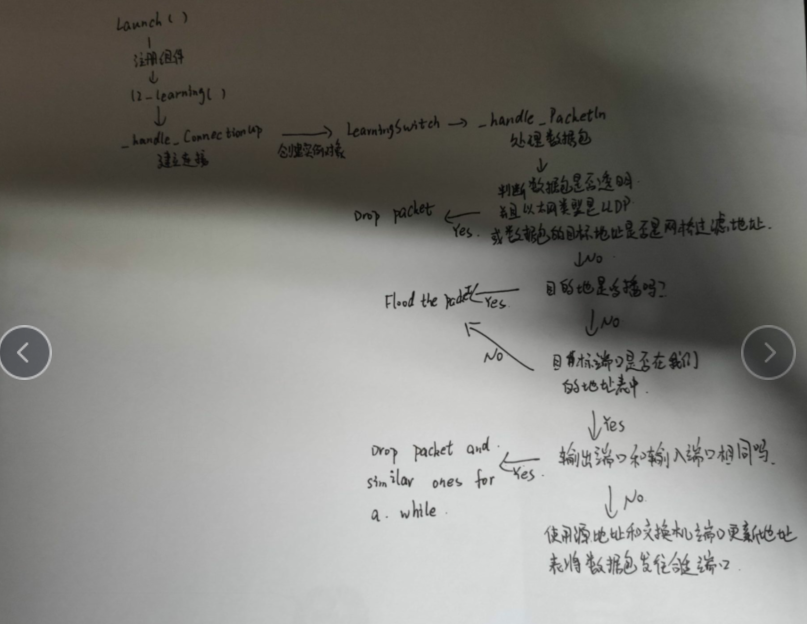 Launch()
注册组件
l2_learning()
_handle_ConnectionUp
建立连接
创建实例对象
LearningSwitch
_handle_PacketIn
处理数据包
判断数据包是否透明
并且以太网类型是LLDP
或数据包的目标地址是否是网桥过滤地址.
Yes.
Drop packet
No.
目的地是多播吗?
Yes.
Flood the packet
No
目标端口是否在我们
的地址表中.
No
Yes
输出端口和输入端口相同吗.
Yes.
Drop packet and
similar ones for
a while.
No.
使用源地址和交换机端口更新地址
表将数据包发往 端口.